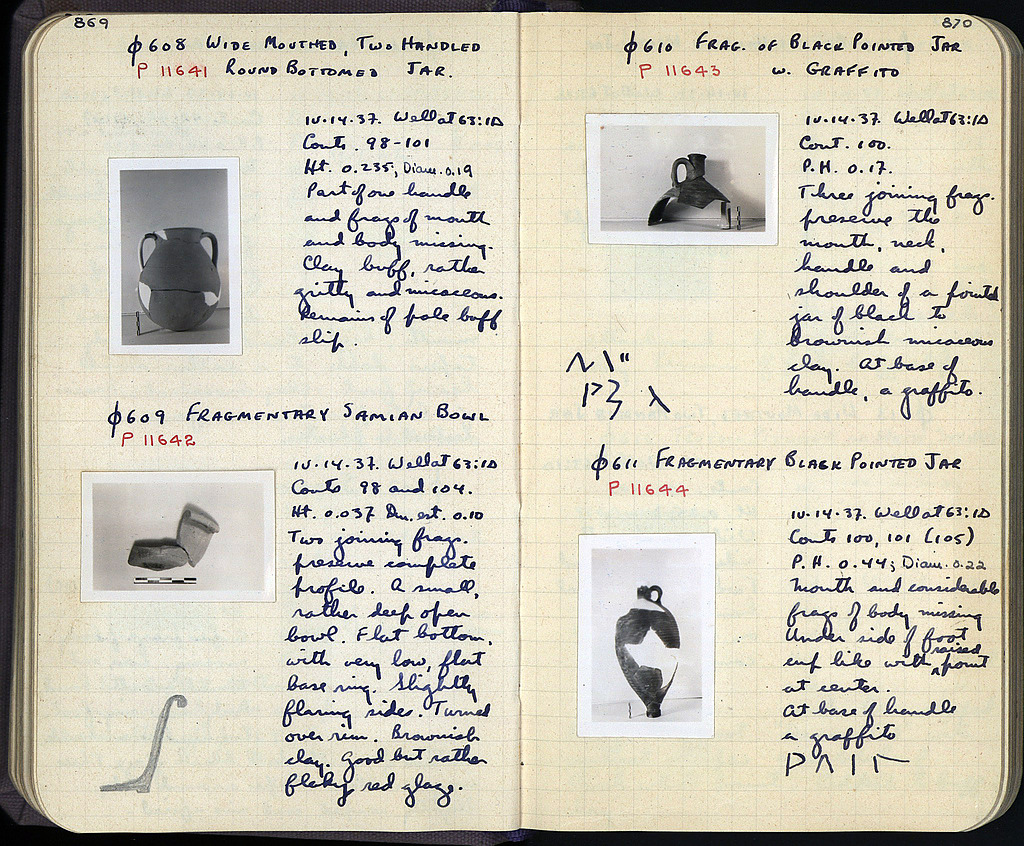 869
φ608 WIDE MOUTHED, TWO HANDLED
P 11641 ROUND BOTTOMED JAR.
IV·14·37. Well at 63:ΙΔ
Conts. 98-101
Ht. 0.235; Diam. 0.19
Part of one handle
and frags of mouth
and body missing.
Clay buff, rather
gritty and micaceous.
Remains of pale buff
slip.
φ609 FRAGMENTARY SAMIAN BOWL
P 11642
IV·14·37. Well at 63:ΙΔ
Conts 98 and 104.
Ht. 0.037 Dm. est. 0.10
Two joining frags.
preserve complete
profile. A small,
rather deep open
bowl. Flat bottom,
with very low, flat
base ring. Slightly
flaring sides. Turned
over rim. Brownish
clay. Good but rather
flaky red glaze.
870
φ610 FRAG. OF BLACK POINTED JAR
P 11643 W. GRAFFITO
IV·14·37. Well at 63:ΙΔ
Cont. 100.
P.H. 0.17.
Three joining frags.
preserve the
mouth, neck,
handle and
shoulder of a pointed
jar of black to
brownish micaceous
clay. At base of
handle, a graffito.
φ611 FRAGMENTARY BLACK POINTED JAR
P 11644
IV·14·37. Well at 63:ΙΔ
Conts 100, 101 (105)
P.H. 0.44; Diam. 0.22
Mouth and considerable
frags of body missing
Under side of foot
cup like with raised point
at center.
At base of handle
a graffito